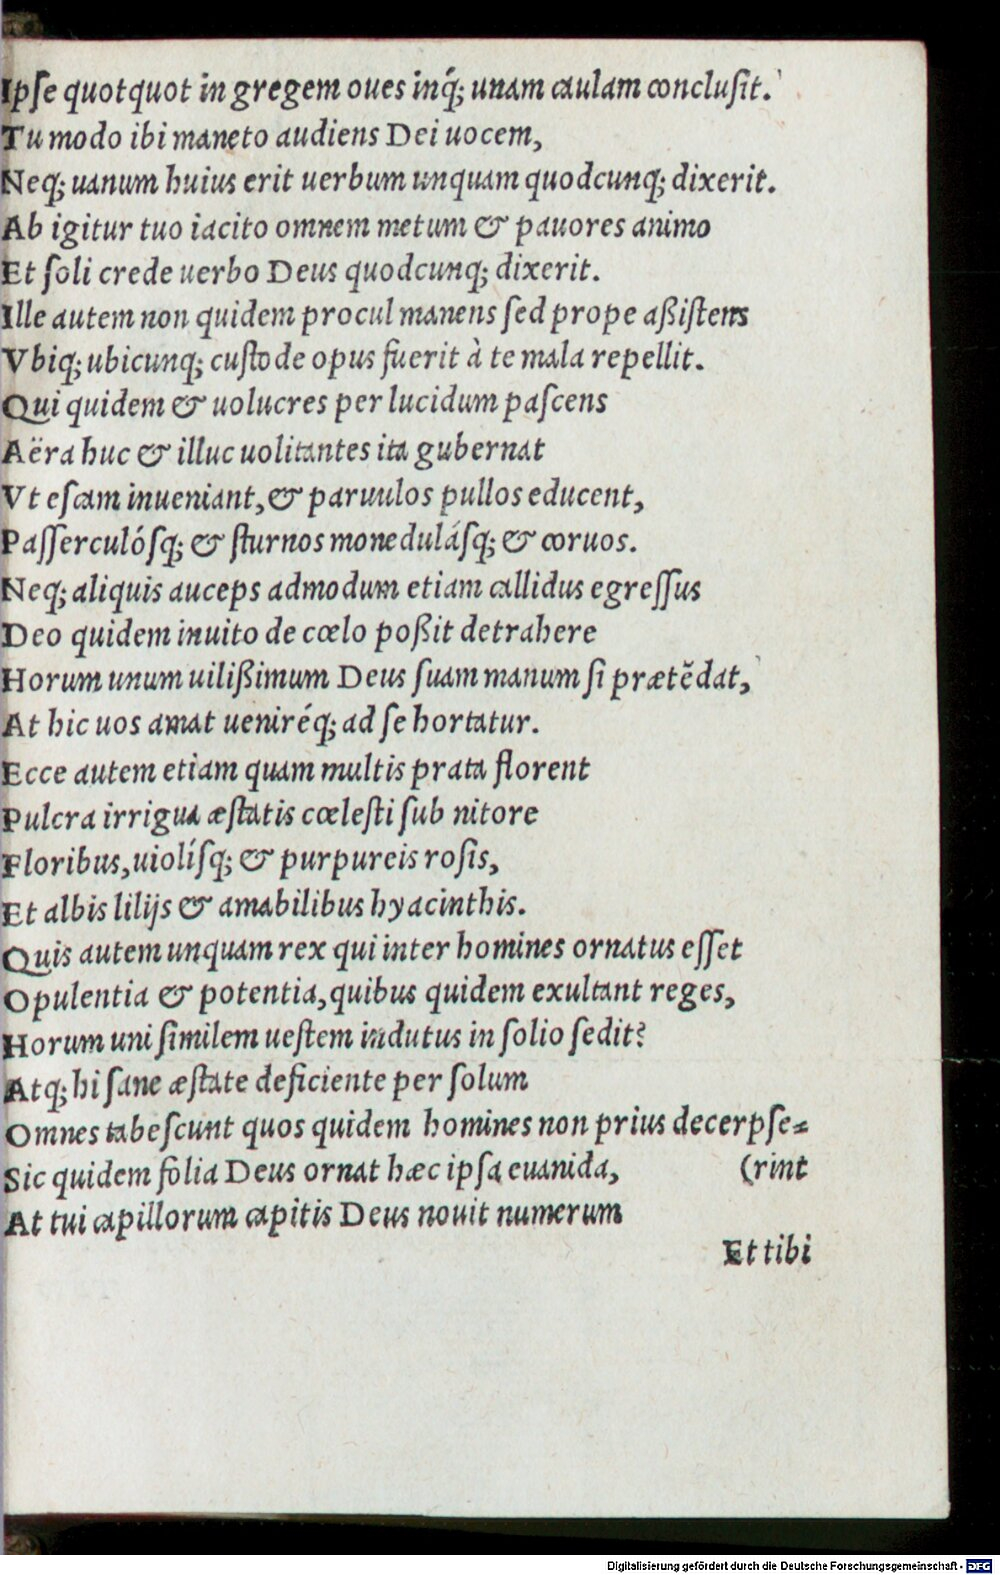 Ipſe quotquot in gregem oues inq́; unam caulam concluſit.
Tu modo ibi maneto audiens Dei uocem,
Neq; uanum huius erit uerbum unquam quodcunq; dixerit.
Ab igitur tuo iacito omnem metum & pauores animo
Et ſoli crede uerbo Deus quodcunq; dixerit.
Ille autem non quidem procul manens ſed prope aßiſtens
Vbiq; ubicunq; cuſtode opus fuerit à te mala repellit.
Qui quidem & uolucres per lucidum paſcens
Aëra huc & illuc uolitantes ita gubernat
Vt eſcam inueniant, & paruulos pullos educent,
Paſſerculóſq; & ſturnos monedulásq; & coruos.
Neq; aliquis auceps admodum etiam callidus egreſſus
Deo quidem inuito de cœlo poßit detrahere
Horum unum uilißimum Deus ſuam manum ſi prætẽdat,
At hic uos amat ueniréq; ad ſe hortatur.
Ecce autem etiam quam multis prata florent
Pulcra irrigua æſtatis cœleſti ſub nitore
Floribus, uiolíſq; & purpureis roſis,
Et albis lilijs & amabilibus hyacinthis.
Quis autem unquam rex qui inter homines ornatus eſſet
Opulentia & potentia, quibus quidem exultant reges,
Horum uni ſimilem ueſtem indutus in ſolio ſedit?
Atq; hi ſane æſtate deficiente per ſolum
Omnes tabeſcunt quos quidem homines non prius decerpſe⸗
Sic quidem folia Deus ornat hæc ipſa euanida, (rint
At tui capillorum capitis Deus nouit numerum
Et tibi
Digitalisierung gefördert durch die Deutsche Forschungsgemeinschaft - DFG